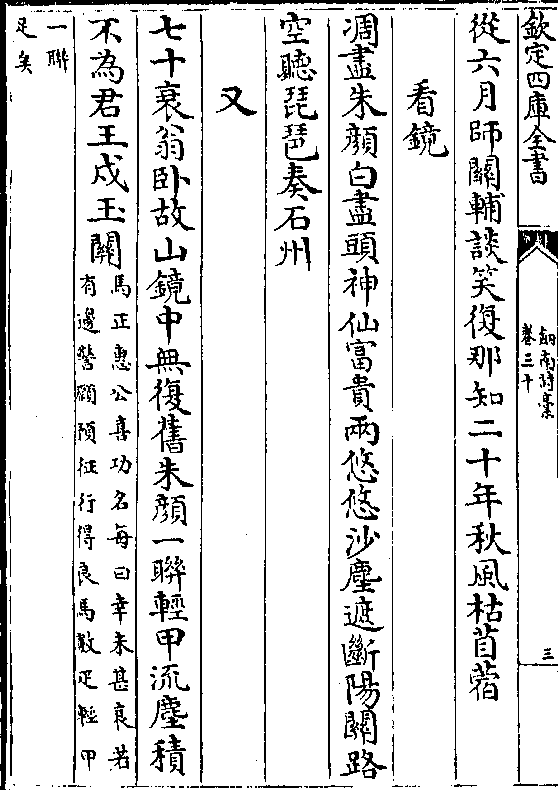 欽定四庫全書
劍南詩稾
卷三十
三
從六月師關輔談笑復那知二十年秋風枯苜蓿
看鏡
凋盡朱顔白盡頭神仙富貴兩悠悠沙塵遮斷陽關路
空聽琵琶奏石州
又
七十衰翁卧故山鏡中無復舊朱顔一聯輕甲流塵積
不為君王戍玉關
馬正惠公喜功名每曰幸未甚衰若
有邊警願預征行得良馬數疋輕甲
一聯
足矣